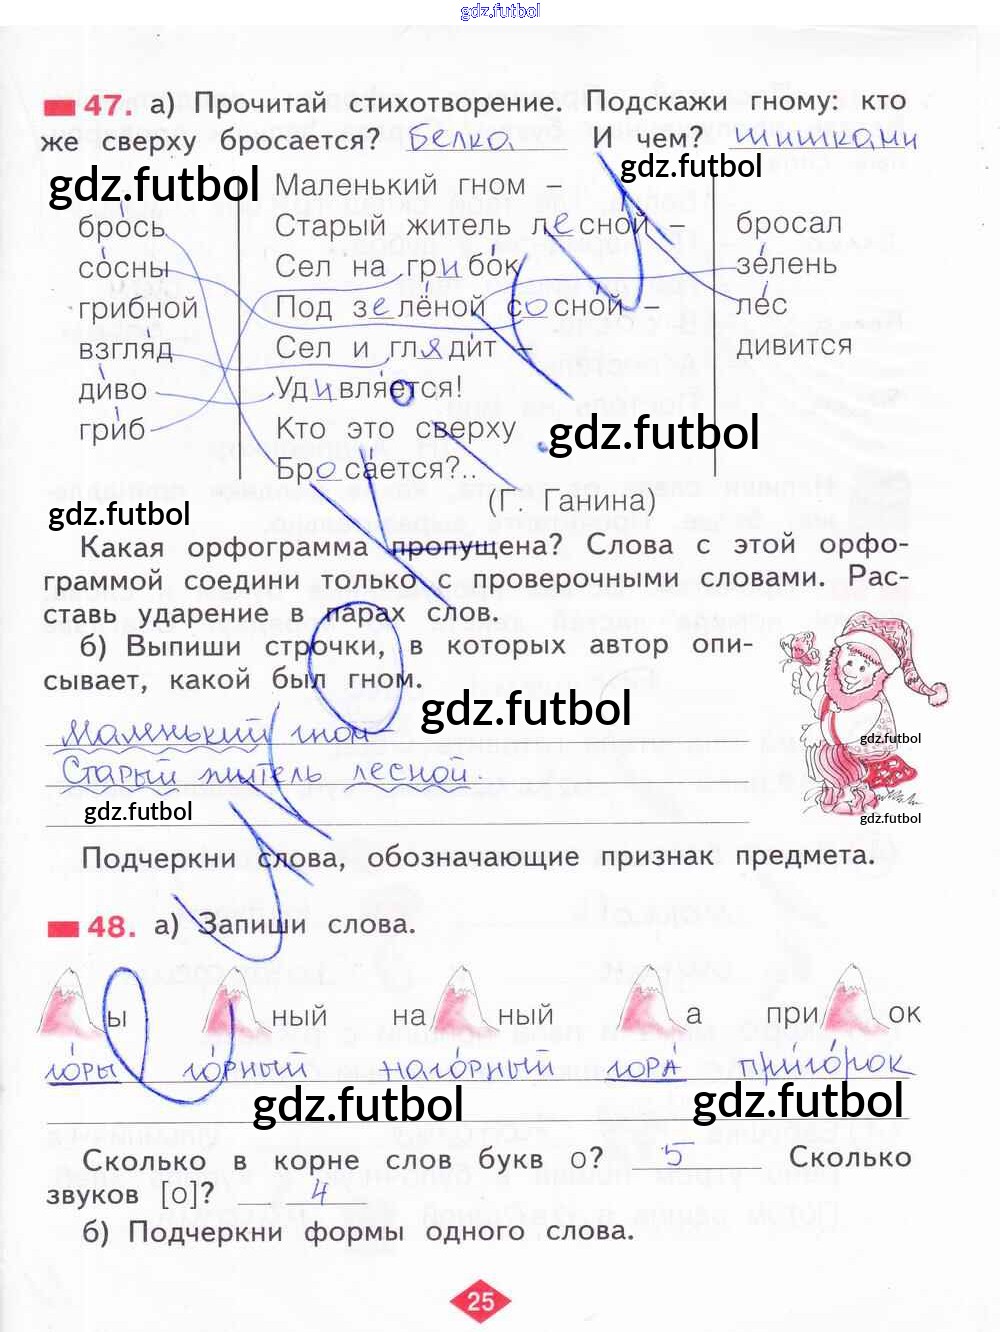 gdz.futbol
47. а) Прочитай стихотворение. Подскажи гному: кто
же сверху бросается? Белка И чем? шишками
gdz.futbol
gdz.futbol
Маленький гном –
брось Старый житель лесной – бросал
сосны Сел на грибок зелень
грибной Под зелёной сосной – лес
взгляд Сел и глядит – дивится
диво Удивляется!
гриб Кто это сверху
gdz.futbol
Бросается?..
(Г. Ганина)
gdz.futbol
Какая орфограмма пропущена? Слова с этой орфо-
граммой соедини только с проверочными словами. Рас-
ставь ударение в парах слов.
б) Выпиши строчки, в которых автор опи-
сывает, какой был гном.
gdz.futbol
Маленький гном –
Старый житель лесной.
gdz.futbol
gdz.futbol
gdz.futbol
Подчеркни слова, обозначающие признак предмета.
48. а) Запиши слова.
ы ный на ный а при ок
го́ры го́рный наго́рный гора́ приго́рок
gdz.futbol
gdz.futbol
Сколько в корне слов букв о? 5 Сколько
звуков [о]? 4
б) Подчеркни формы одного слова.
25